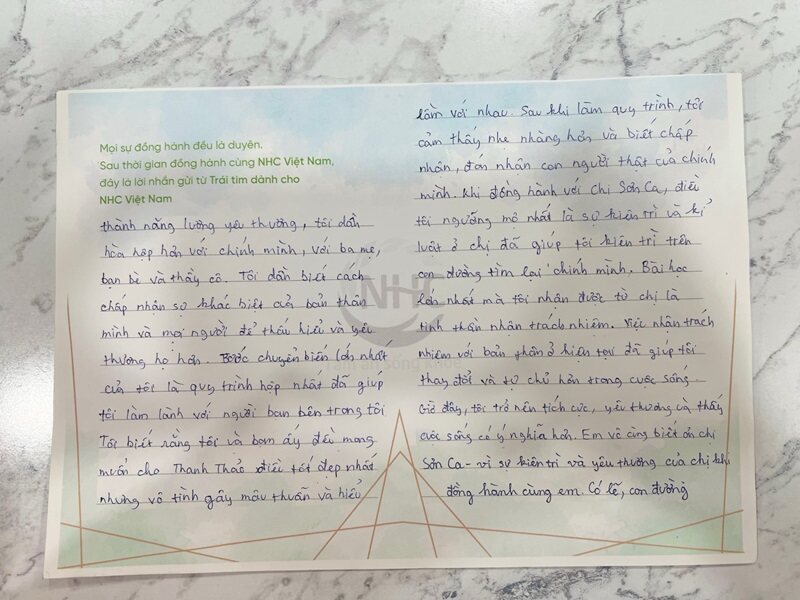 Mọi sự đồng hành đều là duyên.
Sau thời gian đồng hành cùng NHC Việt Nam,
đây là lời nhắn gửi từ Trái tim dành cho
NHC Việt Nam
thành năng lượng yêu thương, tôi dần
hòa hợp hơn với chính mình, với ba mẹ,
bạn bè và thầy cô. Tôi dần biết cách
chấp nhận sự khác biệt của bản thân
mình và mọi người để thấu hiểu và yêu
thương họ hơn. Bước chuyển biến lớn nhất
của tôi là quy trình hợp nhất đã giúp
tôi làm lành với người bạn bên trong tôi
Tôi biết rằng tôi và bạn ấy đều mong
muốn cho Thanh Thảo điều tốt đẹp nhất
nhưng vô tình gây mâu thuẫn và hiểu
lầm với nhau. Sau khi làm quy trình, tôi
cảm thấy nhẹ nhàng hơn và biết chấp
nhận, đón nhận con người thật của chính
mình. Khi đồng hành với Chị Sơn Ca, điều
tôi ngưỡng mộ nhất là sự kiên trì và kỉ
luật ở chị đã giúp tôi kiên trì trên
con đường tìm lại chính mình. Bài học
lớn nhất mà tôi nhận được từ chị là
tinh thần nhận trách nhiệm. Việc nhận trách
nhiệm với bản thân ở hiện tại đã giúp tôi
thay đổi và tự chủ hơn trong cuộc sống.
Giờ đây, tôi trở nên tích cực, yêu thương và thấy
cuộc sống có ý nghĩa hơn. Em vô cùng biết ơn chị
Sơn Ca - vì sự kiên trì và yêu thương của chị khi
đồng hành cùng em. Có lẽ, con đường
NHC
Tâm an Sống Khỏe